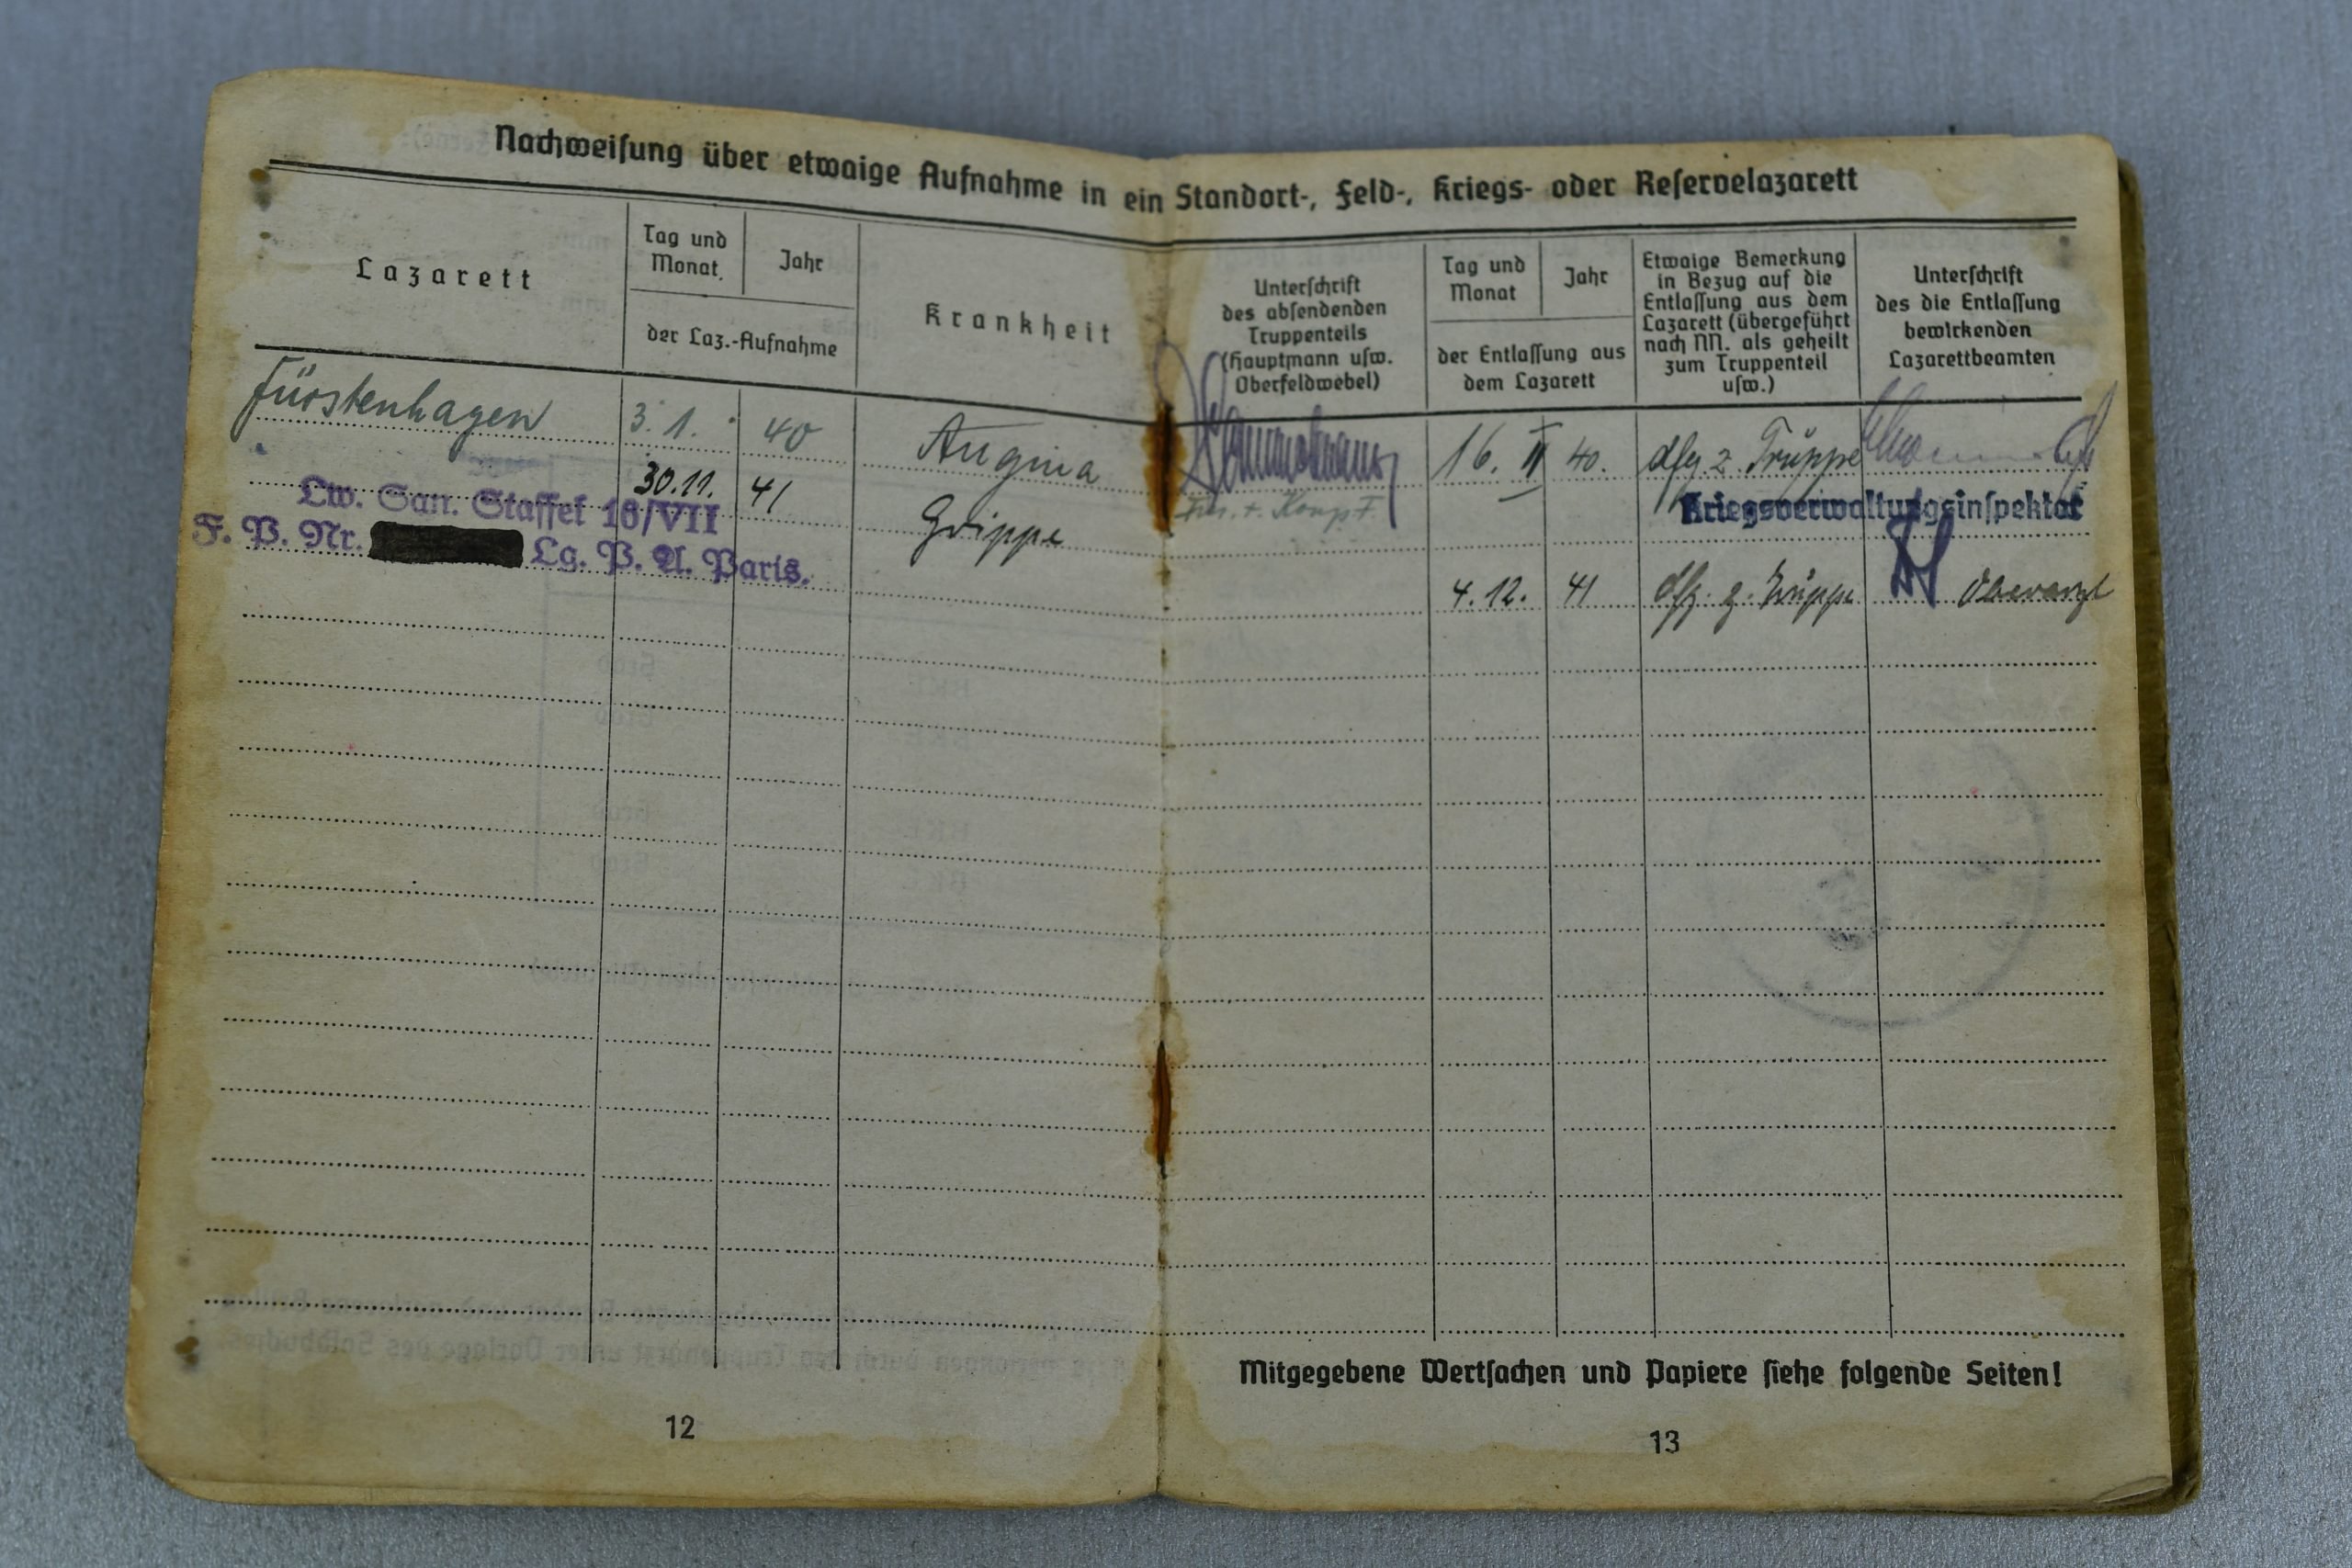 Nachweisung über etwaige Aufnahme in ein Standort-, Feld-, Kriegs- oder Reservelazarett
Lazarett
Tag und
Monat
Jahr
der Laz.-Aufnahme
Krankheit
Unterschrift
des absendenden
Truppenteils
(Hauptmann usw.
Oberfeldwebel)
Tag und
Monat
Jahr
der Entlassung aus
dem Lazarett
Etwaige Bemerkung
in Bezug auf die
Entlassung aus dem
Lazarett (übergeführt
nach NN. als geheilt
zum Truppenteil
usw.)
Unterschrift
des die Entlassung
bewirkenden
Lazarettbeamten
Fürstenhagen 3. 1. 40 Angina 16. II 40. dfg z Truppe
30.11. 41 Grippe
Kriegsverwaltungsinspektor
Lw. San. Staffel 16/VII
F. P. Nr. Lg. P. A. Paris.
4. 12. 41 dfg. z. Truppe Oberarzt
Mitgegebene Wertsachen und Papiere siehe folgende Seiten!
12
13